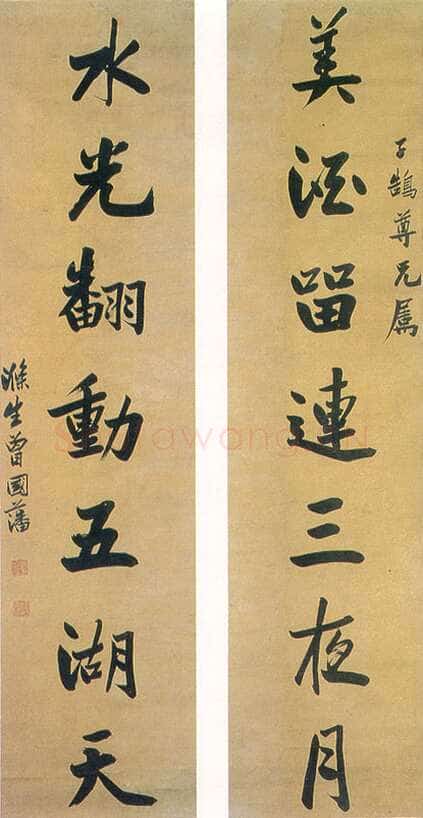 子鵠尊兄属
美酒留連三夜月
水光翻動五湖天
滌生曾國藩